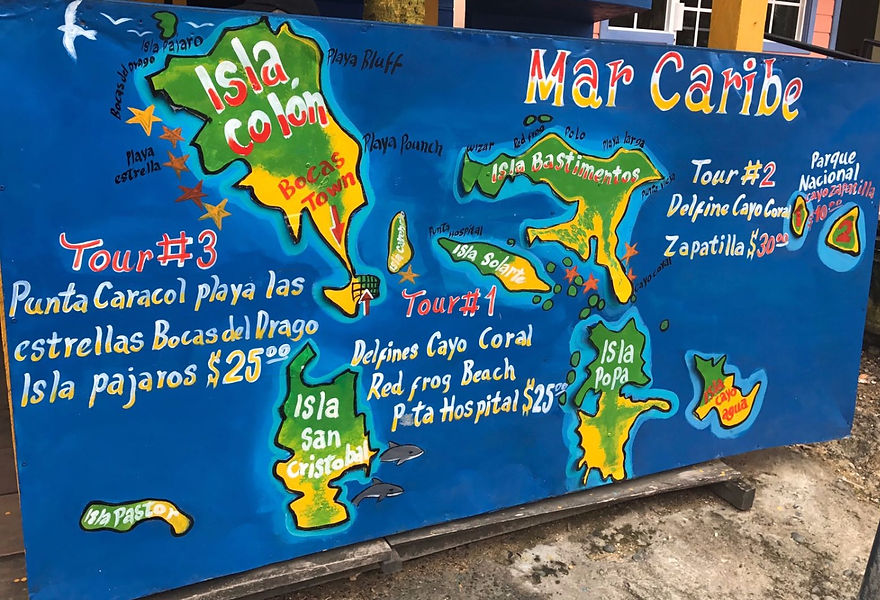 Isla Pajaro
Bocas del Drago
Isla
Colón
Playa Bluff
Mar Caribe
Playa estrella
Bocas
Town
Playa Pounch
Wizar
Red frog
Polo
Playa larga
Isla Bastimentos
Punta
Tour #2
Delfine Cayo Coral
Zapatilla $30.00
Parque
Nacional
Cayo Zapatilla
$10.00
2
Isla Carenero
Punta
Hospital
Isla Solarte
Cayo Coral
Tour #3
Punta Caracol playa las
estrellas Bocas del Drago
Isla pajaros $25.00
Tour #1
Delfines Cayo Coral
Red frog Beach
P ta Hospital $25.00
Isla
San
Cristobal
Isla
Popa
Isla
Cayo
agua
Isla Pastor